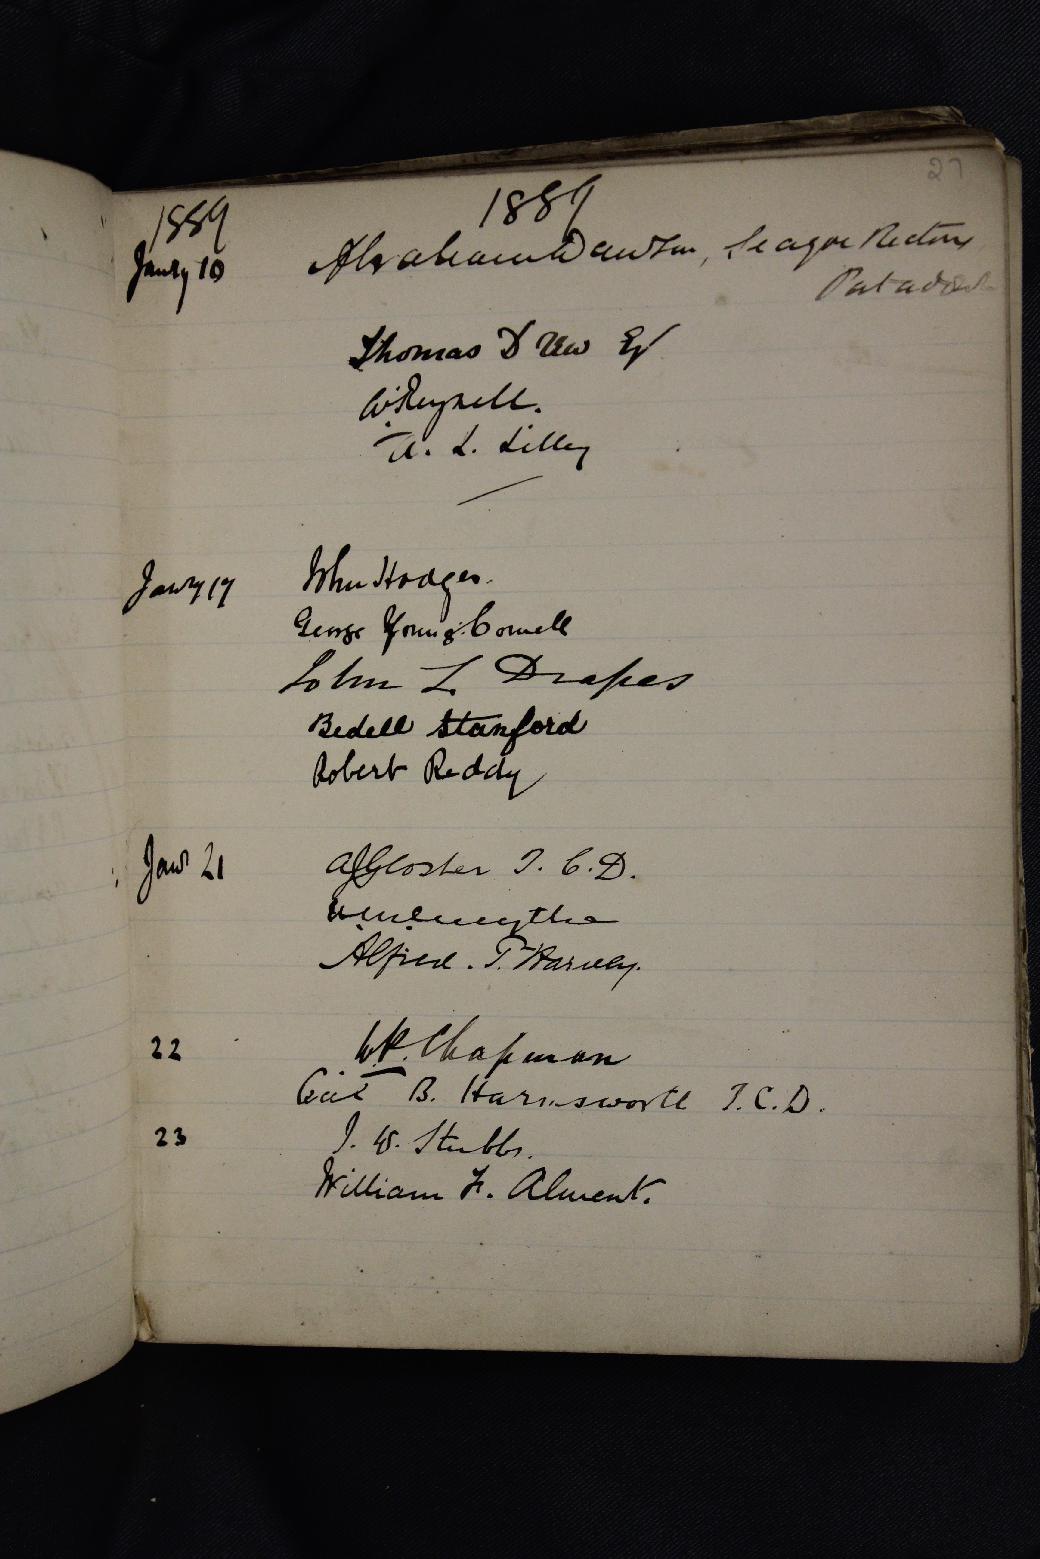 27
1889 1889
Janry 10 Abraham Dawson, Seagoe Rectory
Portadown
Thomas Drew Esq
W. Reynell.
A. L. Lilley
Janry 17 John Hodges.
George Young Cornell
John L. Drapes
Bedell Stanford
Robert Reddy
Janr 21 Gloster T. C. D.
Alfred. T. Harvey.
22 W.P. Chapman
Cecil B. Harmsworth T.C.D.
23 J. W. Stubbs.
William F. Alment.